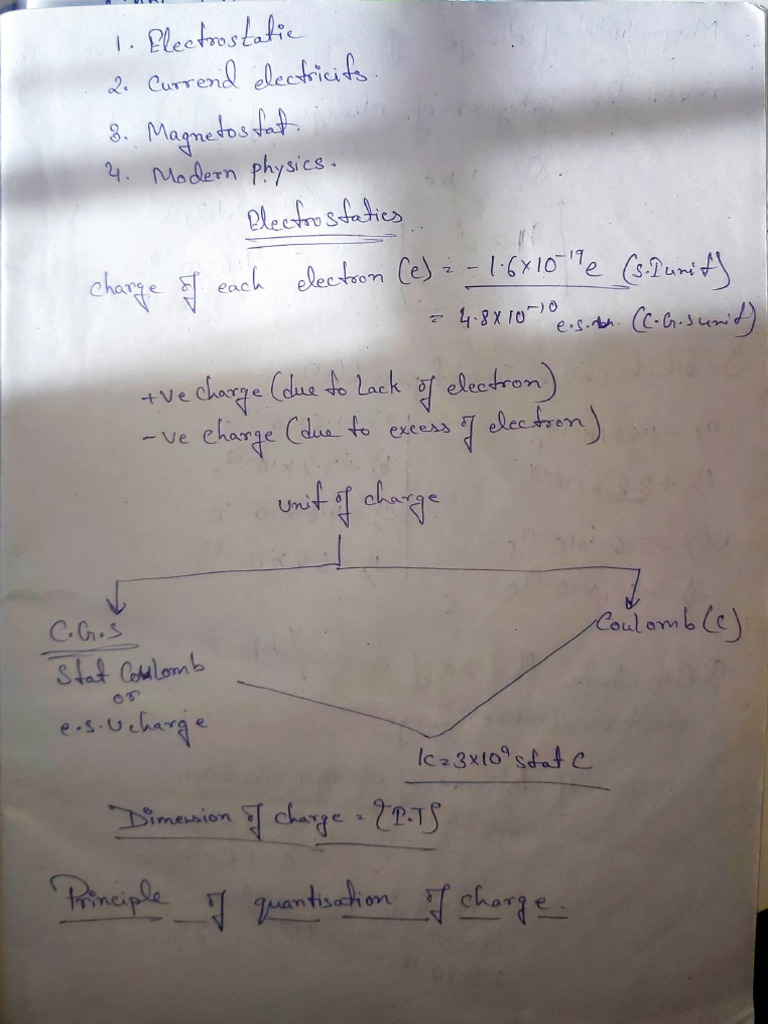 1. Electrostatic
2. Currend electricits.
3. Magnetostat.
4. Modern physics.
Electrostatics
charge of each electron (e) = - 1.6×10⁻¹⁹e (S.I unit)
= 4.8×10⁻¹⁰ e.s. (C.G.S unit)
+ve charge (due to Lack of electron)
-ve charge (due to excess of electron)
unit of charge
C.G.S
Coulomb (C)
Stat Coulomb
or
e.s.u charge
1C=3×10⁹ stat C
Dimension of charge = {I.T}
Principle of quantisation of charge.